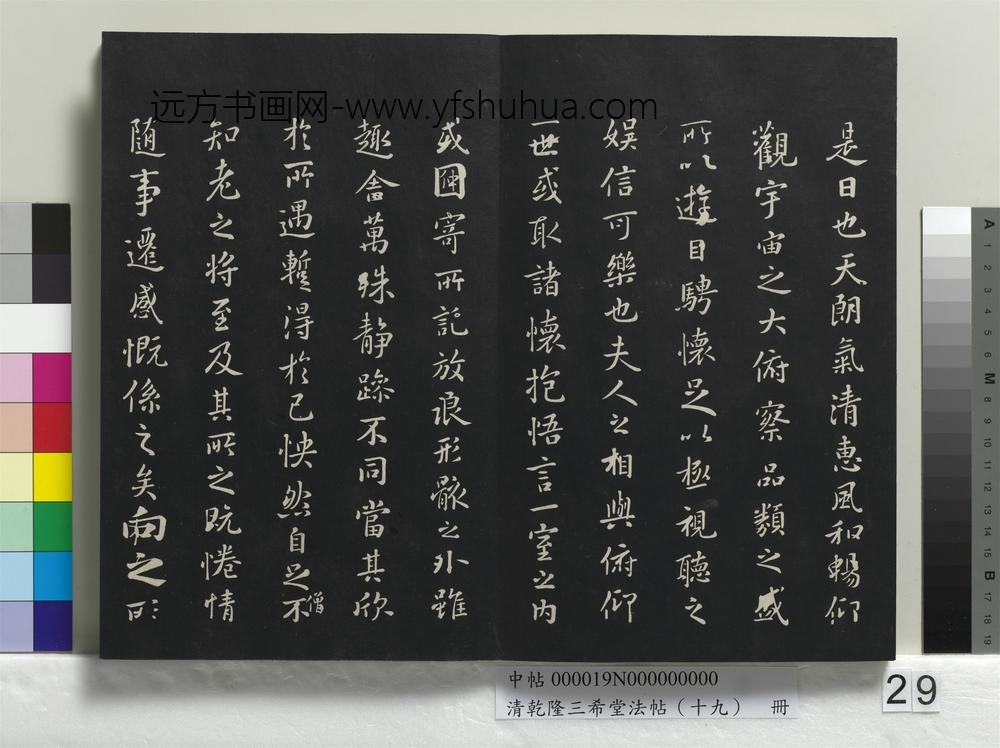 远方书画网-www.yfshuhua.com
是日也天朗氣清惠風和暢仰
觀宇宙之大俯察品類之盛
所以遊目騁懷足以極視聽之
娛信可樂也夫人之相與俯仰
一世或取諸懷抱悟言一室之內
或因寄所託放浪形骸之外雖
趣舍萬殊靜躁不同當其欣
於所遇暫得於己怏然自足不
僧
知老之將至及其所之既惓情
隨事遷感慨係之矣向之所
中帖 000019N000000000
清乾隆三希堂法帖（十九） 冊
29
A 1 2 3 4 5 6 M 8 9 10 11 12 13 14 15 B 17 18 19